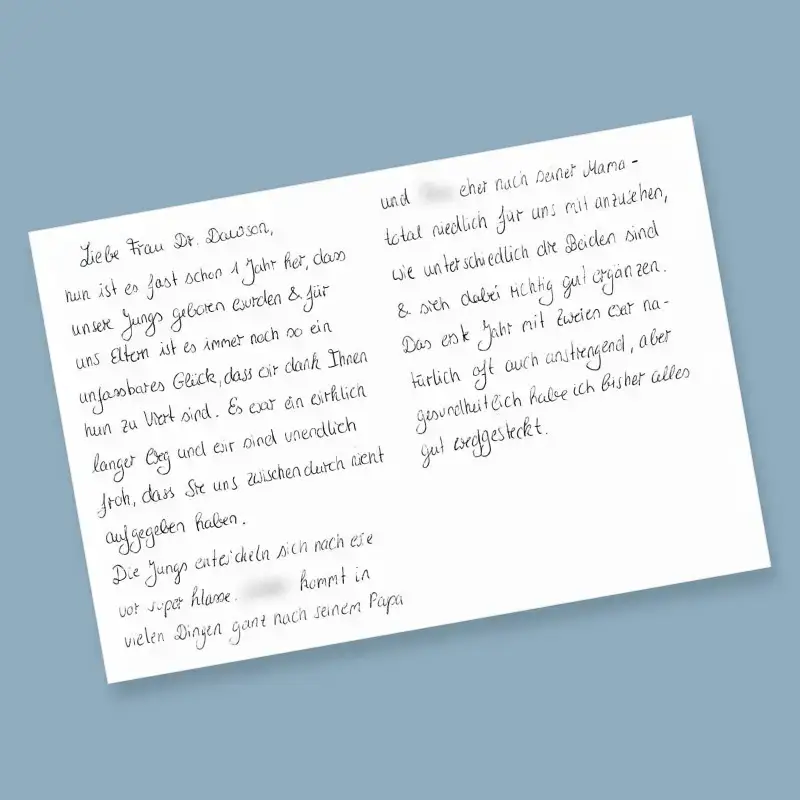 Liebe Frau Dr. Dawson,
nun ist es fast schon 1 Jahr her, dass
unsere Jungs geboren wurden & für
uns Eltern ist es immer noch so ein
unfassbares Glück, dass wir dank Ihnen
nun zu Viert sind. Es war ein wirklich
langer Weg und wir sind unendlich
froh, dass Sie uns zwischendurch nicht
aufgegeben haben.
Die Jungs entwickeln sich nach wie
vor super klasse. kommt in
vielen Dingen ganz nach seinem Papa
und eher nach seiner Mama -
total niedlich für uns mit anzusehen,
wie unterschiedlich die Beiden sind
& sich dabei richtig gut ergänzen.
Das erste Jahr mit Zweien war na-
türlich oft auch anstrengend, aber
gesundheitlich habe ich bisher alles
gut weggesteckt.